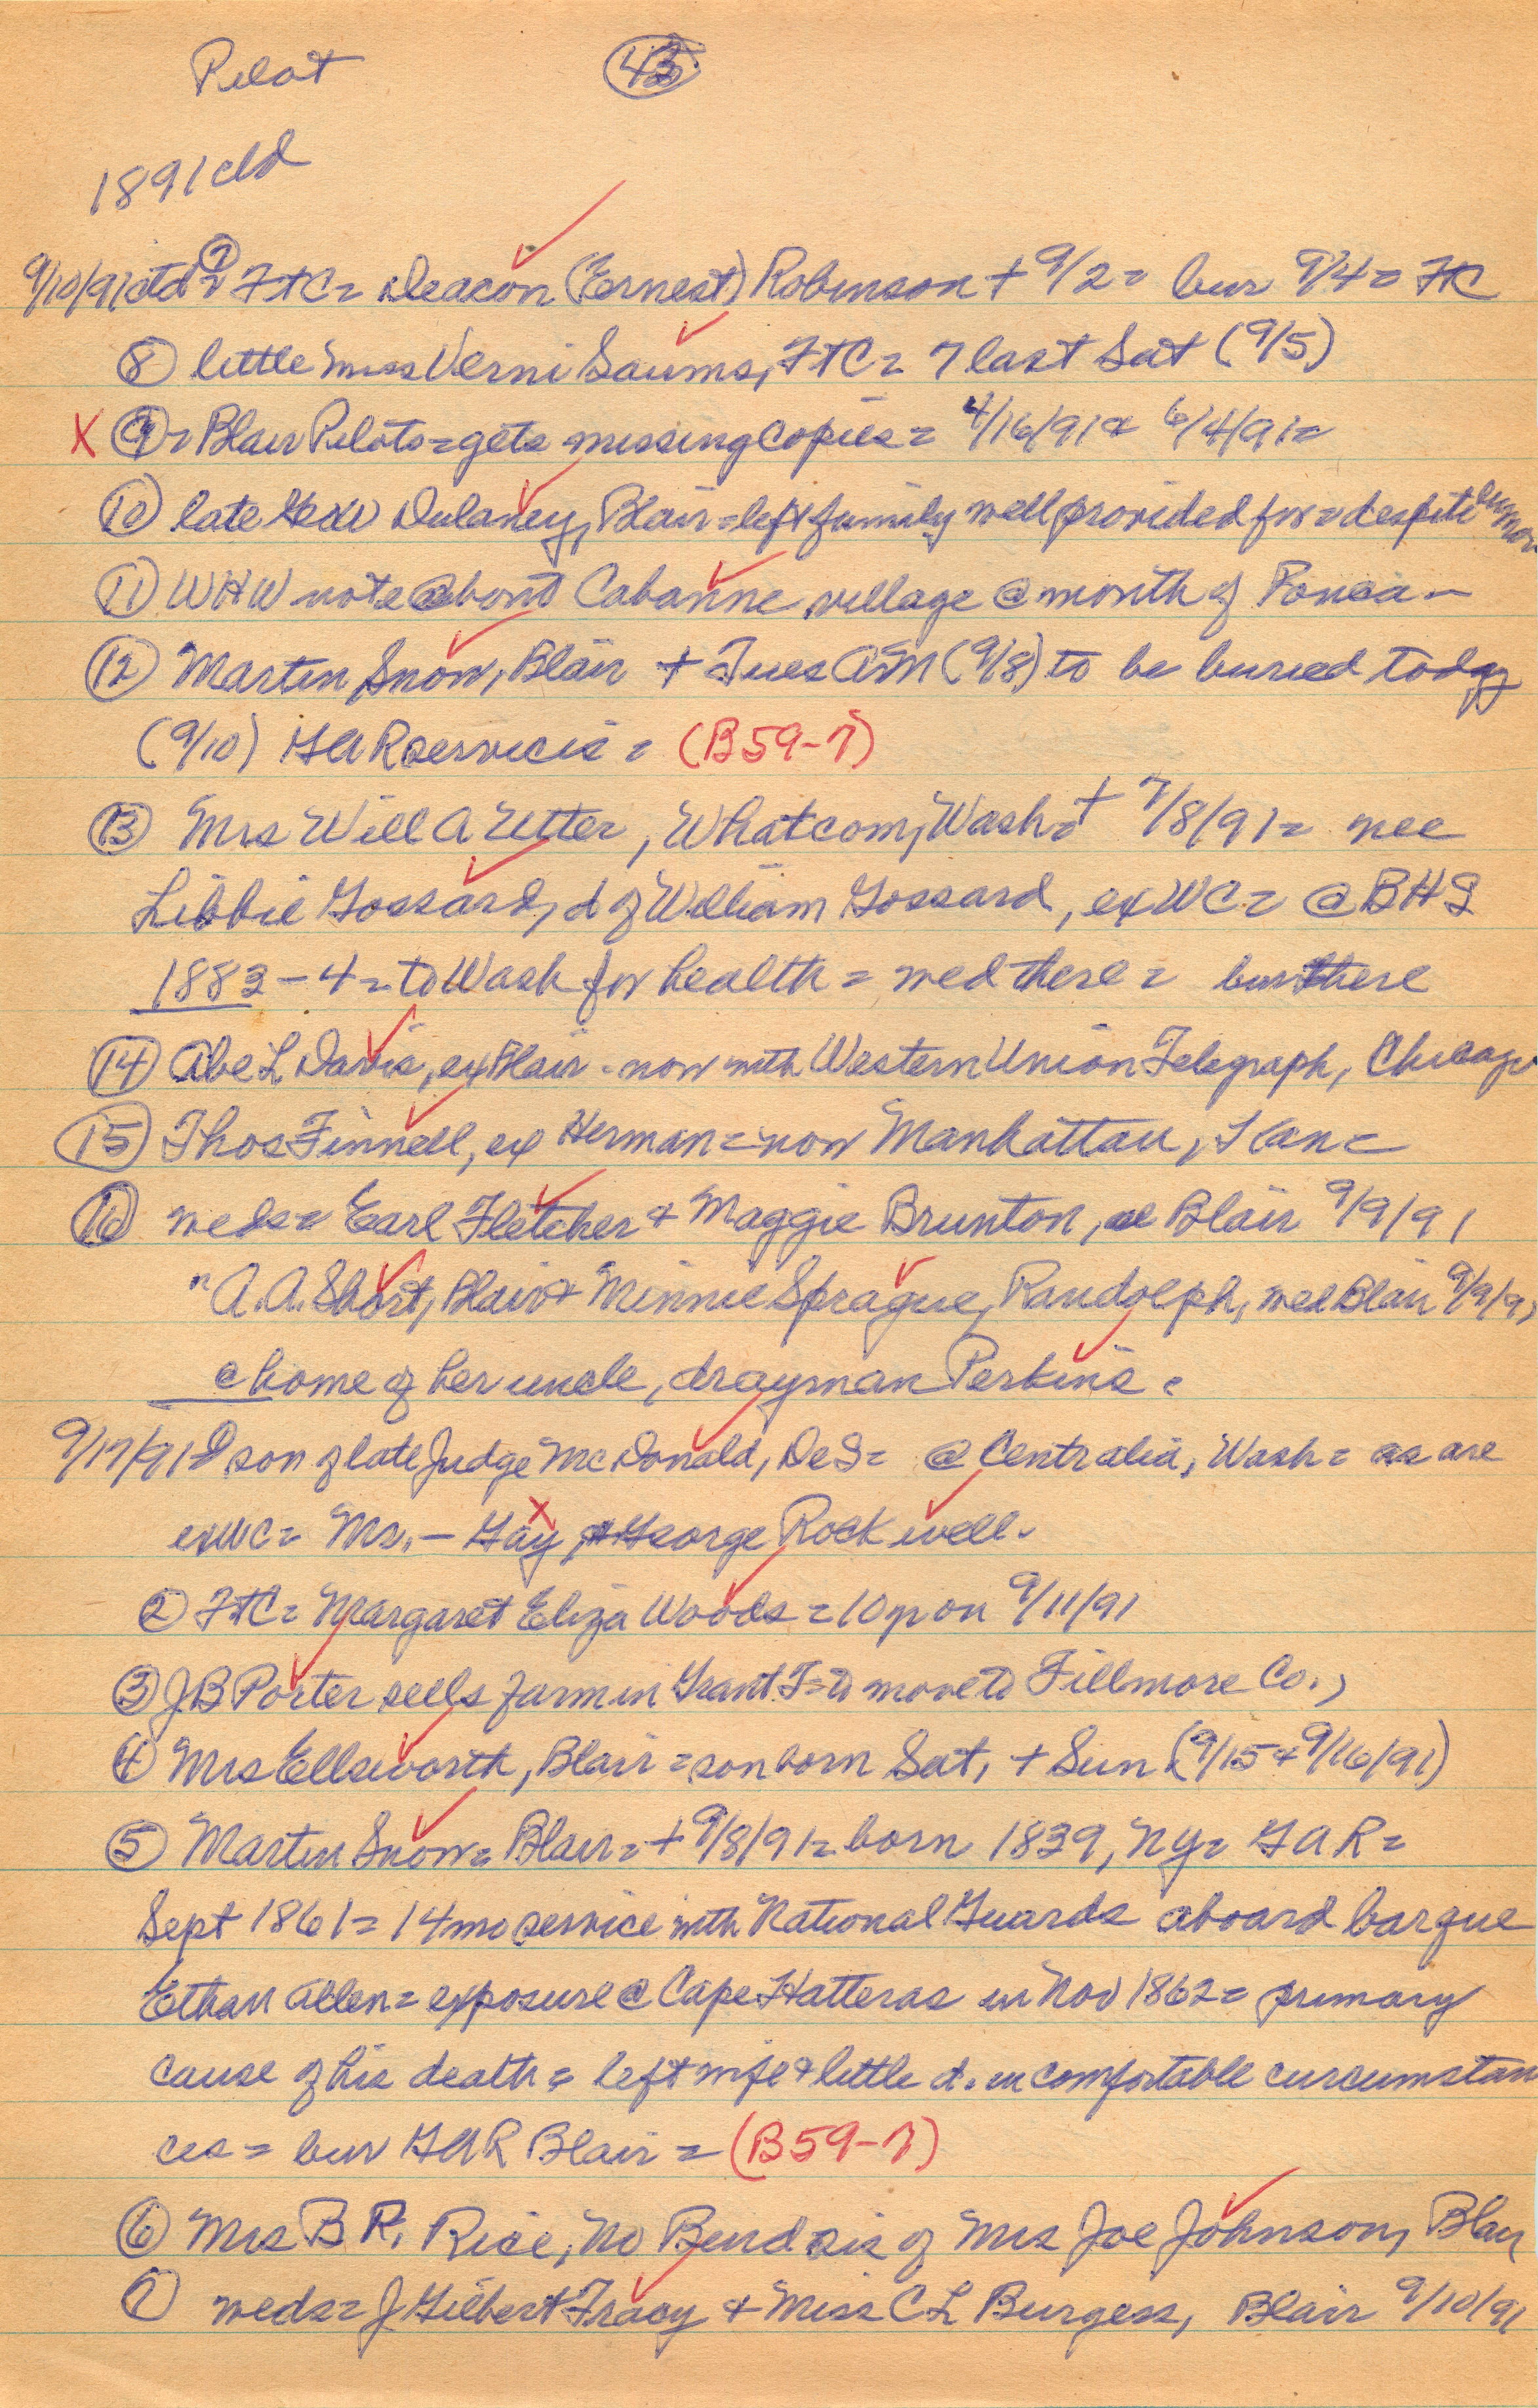 Pilot 43
1891 ctd
9/10/91 ctd ⑦ = FtC = Deacon (Ernest) Robinson + 9/2 = bur 9/4 = FtC
⑧ little miss Verni Saums, FtC = 7 last Sat (9/5)
X ⑨ = Blair Pilots = gets missing copies = 4/16/91 & 6/4/91 =
⑩ late Dulaney, Blair = left family well provided for = despite rumor
⑪ WHW note @bout Cabanne village @ mouth of Ponca -
⑫ Martin Snow, Blair + Tues AM (9/8) to be buried today
(9/10) GAR services = (B59-7)
⑬ Mrs Will A Utter, Whatcom, Wash = + 7/8/91 = nee
Libbie Gossard, d of William Gossard, ex WC = @ BHS
1883-4 = to Wash for health = wed there = bur there
⑭ Abe L Davis, ex Blair - now with Western Union Telegraph, Chicago
⑮ Thos Finnell, ex Herman = now Manhattan, Kan =
⑯ weds = Earl Fletcher & Maggie Brunton, al Blair 9/9/91
" A.A. Short, Blair & Minnie Sprague, Randolph, wed Blair 9/9/91
@ home of her uncle, drayman Perkins.
9/17/91 ① son of late Judge McDonald, DeS = @ Centralia, Wash = as are
exWC = Mr. - Gay, & George Rockwell.
② FtC = Margaret Eliza Woods = 10 yr on 9/11/91
③ JB Porter sells farm in Grant T = to move to Fillmore Co.,
④ Mrs Ellsworth, Blair = son born Sat, + Sun (9/15 & 9/16/91)
⑤ Martin Snow = Blair = + 9/8/91 = born 1839, NY = GAR =
Sept 1861 = 14 mo service with National Guards aboard barque
Ethan Allen = exposure @ Cape Hatteras in Nov 1862 = primary
cause of his death = left wife & little d. in comfortable circumstan
ces = bur GAR Blair = (B59-7)
⑥ Mrs B R. Rice, No Bend sis of Mrs Joe Johnson, Blair
⑦ weds = J Gilbert Tracy & Miss C L Burgess, Blair 9/10/91